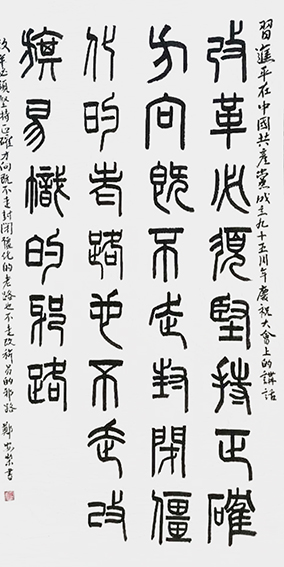 習近平在中國共產黨成立九十五周年慶祝大會上的講話
改革必須堅持正確
方向既不走封閉僵
化的老路也不走改
旗易幟的邪路
改革必須堅持正確方向既不走封閉僵化的老路也不走改旗易幟的邪路